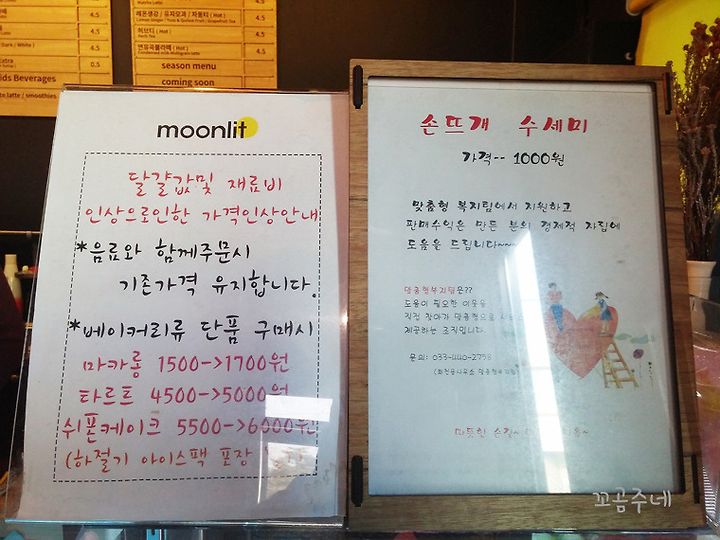 레몬생강 / 유자모과 / 자몽티 ( Hot ) 4.5
Lemon Ginger / Yuzu & Quince Fruit / Grapefruit Tea
허브티 ( Hot ) 4.5
Herb Tea
연유곡물라떼 ( Hot ) 4.5
season menu
coming soon
4.5
4.5
Dark / White ) 4.5
0.5
ids Beverages
latte / smoothies
moonlit
달걀값및 재료비
인상으로인한 가격인상안내
*음료와 함께주문시
기존가격 유지합니다.
*베이커리류 단품 구매시
마카롱 1500->1700원
타르트 4500->5000원
쉬폰케이크 5500->6000원
(하절기 아이스팩 포장
손뜨개 수세미
가격-- 1000원
맞춤형 복지팀에서 지원하고
판매수익은 만든 분의 경제적 자립에
도움을 드립니다~~~
맞춤형복지팀은??
도움이 필요한 이웃을
직접 찾아가 맞춤형으로
제공하는 조직입니다.
문의: 033-440-2758
따뜻한
꼬곰주네